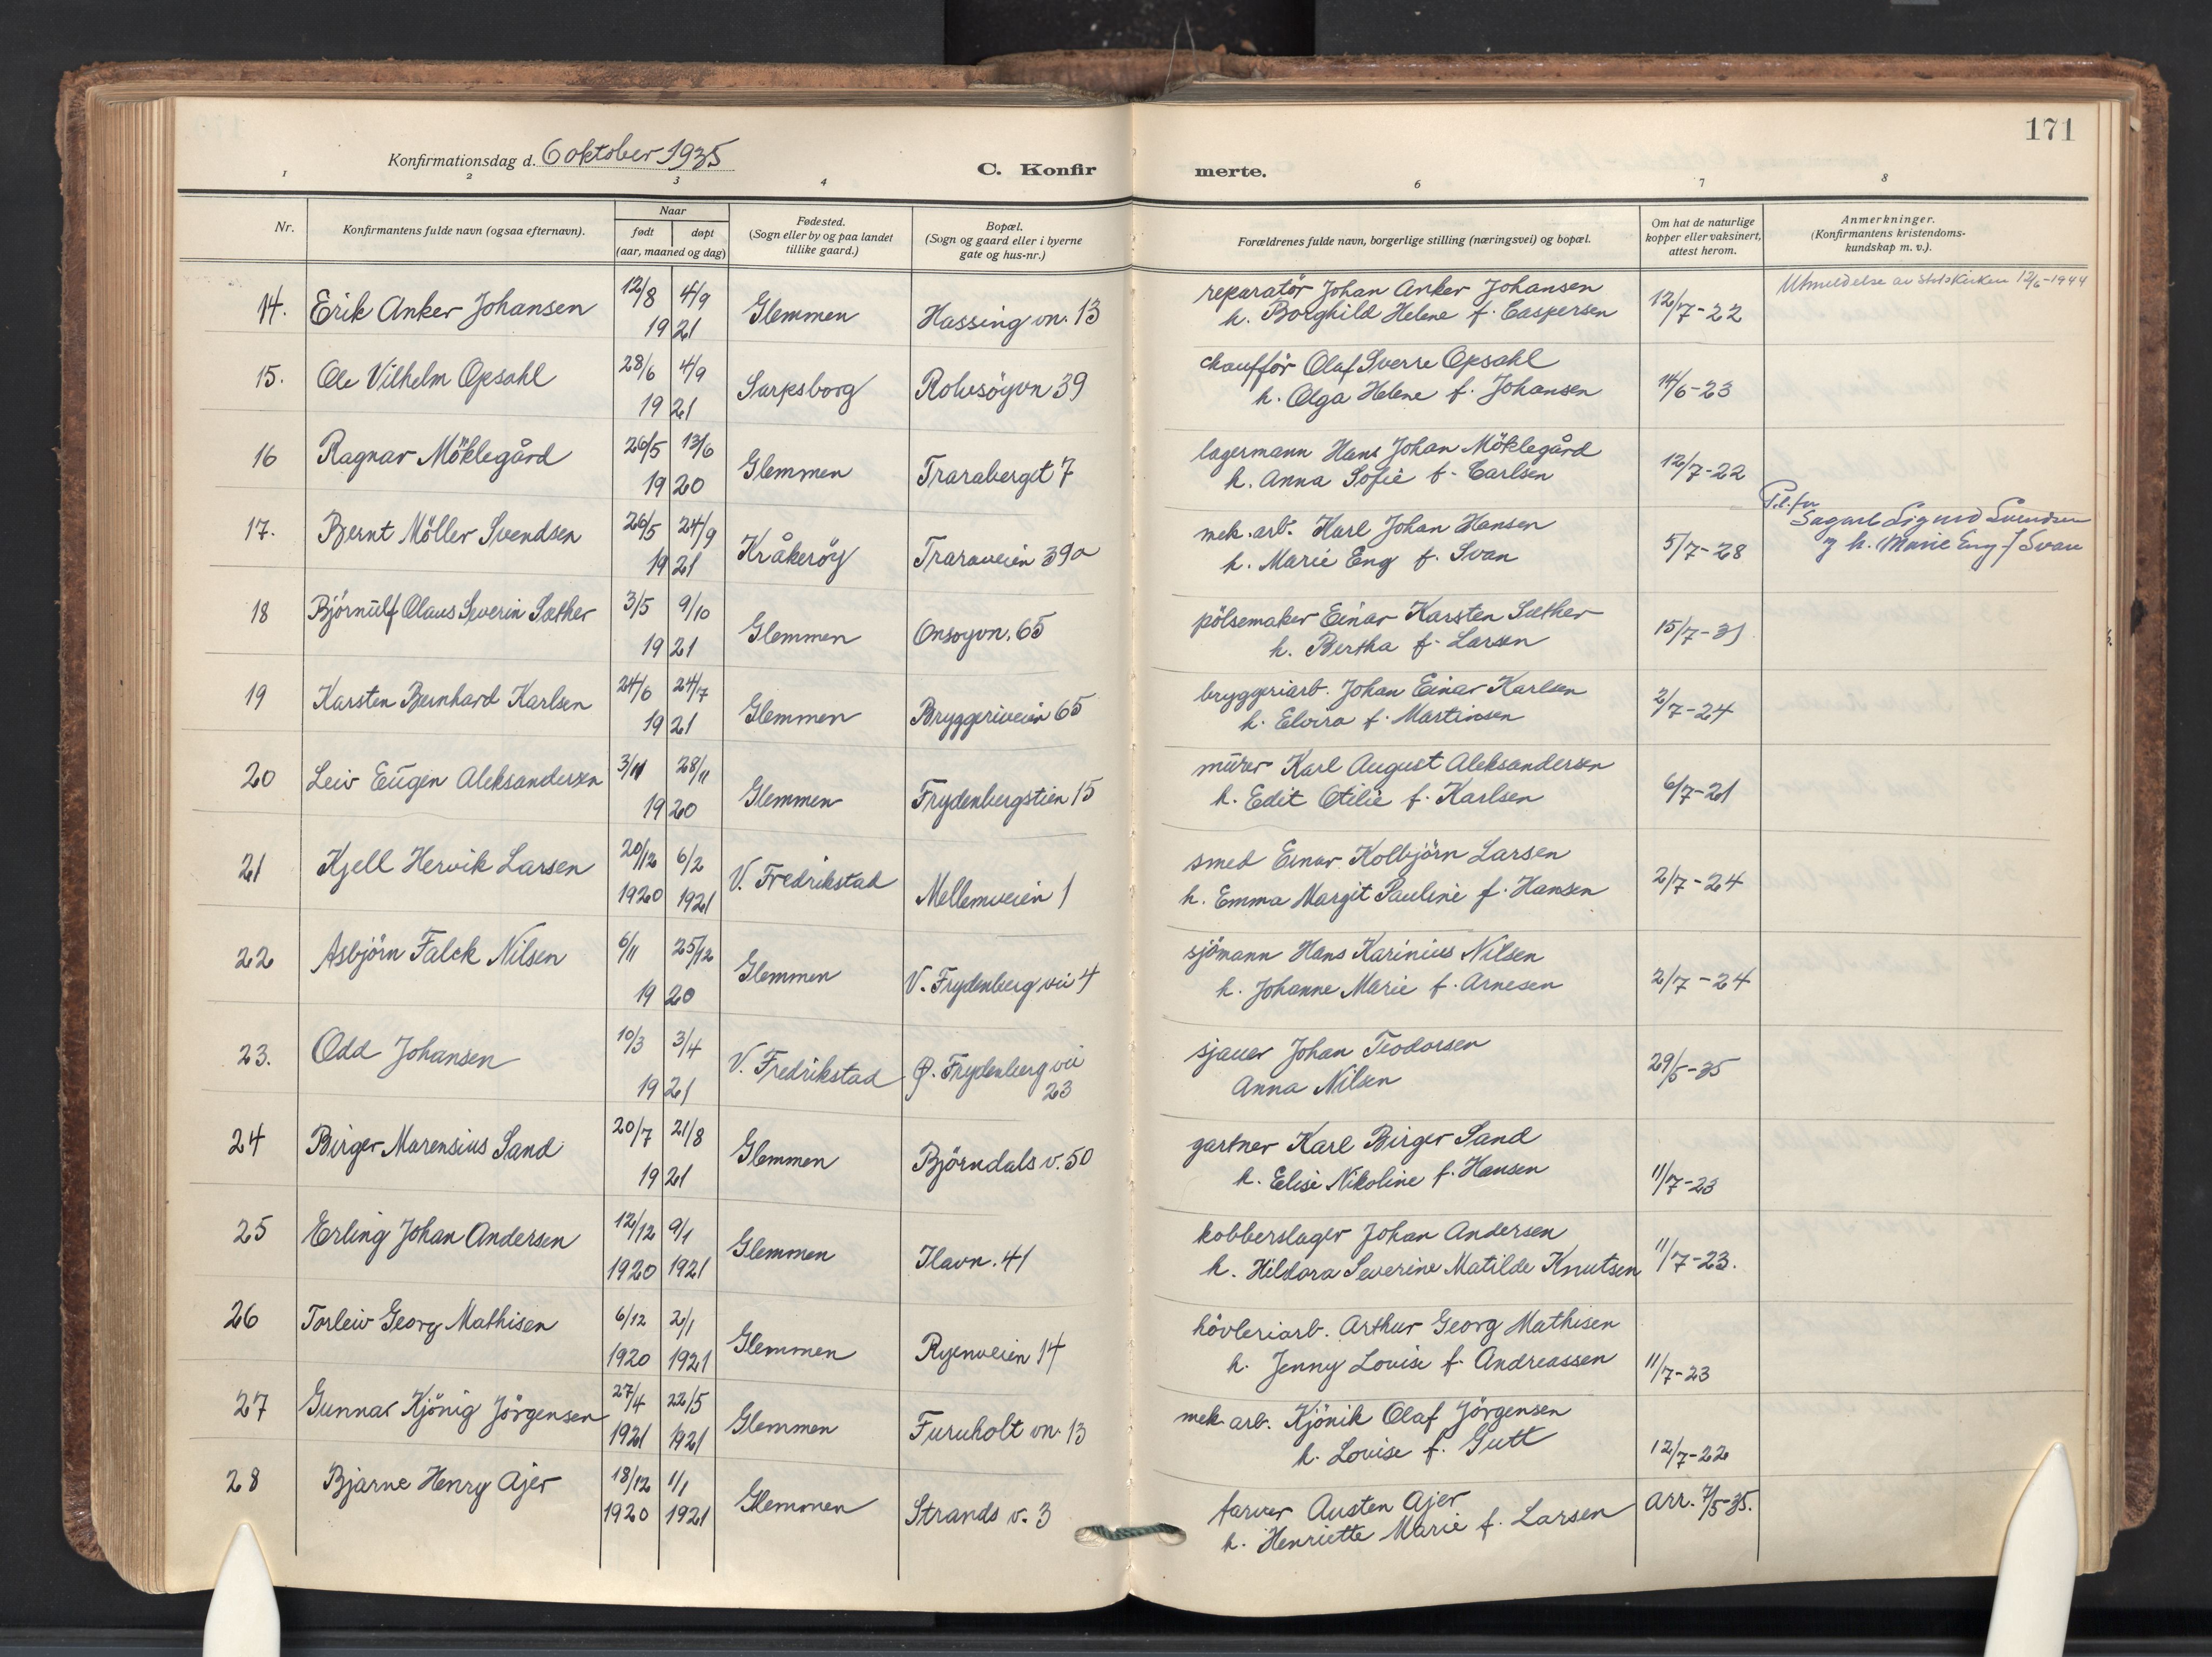 171
Konfirmationsdag d. 6 oktober 1935
C. Konfirmerte.
1 2 3 4 6 7 8
Nr.
Konfirmantens fulde navn (ogsaa efternavn).
Naar
født døpt
(aar, maaned og dag)
Fødested.
(Sogn eller by og paa landet
tillike gaard.)
Bopæl.
(Sogn og gaard eller i byerne
gate og hus-nr.)
Forældrenes fulde navn, borgerlige stilling (næringsvei) og bopæl.
Om hat de naturlige
kopper eller vaksinert,
attest herom.
Anmerkninger.
(Konfirmantens kristendoms-
kundskap m. v.).
14. Erik Anker Johansen 12/8 4/9 1921 Glemmen Hassing vn. 13
reparatör Johan Anker Johansen
h. Borghild Helene f. Caspersen 12/7-22
Utmeldelse av statskirken 12/6-1944
15. Ole Vilhelm Opsahl 28/6 4/9 1921 Sarpsborg Rolvsöyvn 39
chaufför Olaf Sverre Opsahl
h. Olga Helene f. Johansen 14/6-23
16 Ragnar Möklegård 26/5 13/6 1920 Glemmen Traraberget 7
lagermann Hans Johan Möklegård
h. Anna Sofie f. Carlsen 12/7-22
17. Bernt Möller Svendsen 26/5 24/9 1921 Kråkeröy Traraveien 39a
mek. arb. Karl Johan Hansen
h. Marie Eng f. Svan 5/7-28
Sigurd Svendsen
og h. Marie Eng f Svan
18 Björnulf Olaus Severin Sæther 3/5 9/10 1921 Glemmen Onsoyvn. 65
pölsemaker Einar Karsten Sæther
h. Bertha f. Larsen 15/7-31
19 Karsten Bernhard Karlsen 24/6 24/7 1921 Glemmen Bryggeriveien 65
bryggeriarb. Johan Einar Karlsen
h. Elvira f. Martinsen 2/7-24
20 Leiv Eugen Aleksandersen 3/11 28/11 1920 Glemmen Frydenbergstien 15
murer Karl August Aleksandersen
h. Edit Otilie f. Karlsen 6/7-21
21 Kjell Hervik Larsen 20/12 1920 6/2 1921 V. Fredrikstad Mellemveien 1
smed Einar Kolbjörn Larsen
h. Emma Margit Pauline f. Hansen 2/7-24
22 Asbjörn Falck Nilsen 6/11 25/12 1920 Glemmen V. Frydenberg vei 4
sjömann Hans Karinius Nilsen
h. Johanne Marie f. Arnesen 2/7-24
23. Odd Johansen 10/3 3/4 1921 V. Fredrikstad Ø. Frydenberg vei 23
sjauer Johan Teodorsen
Anna Nilsen 29/5-35
24 Birger Marensius Sand 20/7 21/8 1921 Glemmen Björndals v. 50
gartner Karl Birger Sand
h. Elise Nikoline f. Hansen 11/7-23
25 Erling Johan Andersen 12/12 1920 9/1 1921 Glemmen Ilavn. 41
kobberslager Johan Andersen
h. Hildora Severine Matilde Knutsen 11/7-23.
26 Torleiv Georg Mathisen 6/12 1920 2/1 1921 Glemmen Ryenveien 14
hövleriarb. Arthur Georg Mathisen
h. Jenny Louise f. Andreassen 11/7-23
27 Gunnar Kjönig Jörgensen 27/4 1921 22/5 1921 Glemmen Furuholt vn. 13
mek. arb. Kjönik Olaf Jörgensen
h. Louise f. Gutt 12/7-22
28 Bjarne Henry Ajer 18/12 1920 1/1 1921 Glemmen Strands v. 3
farver Austen Ajer
h. Henriette Marie f. Larsen Arr. 7/5-35.